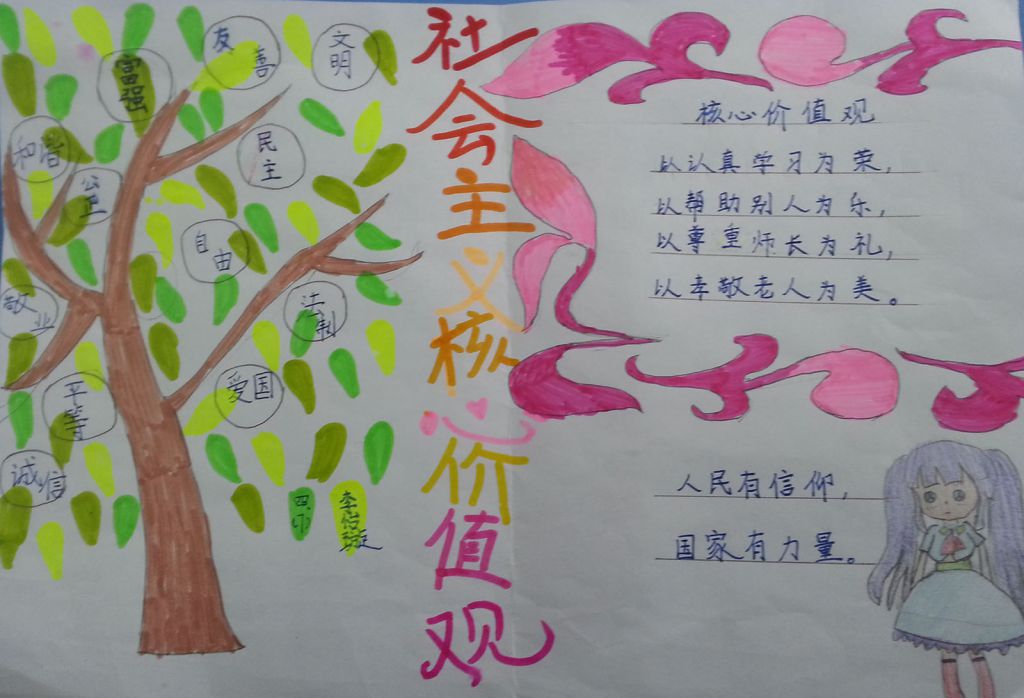 社会主义核心价值观
友善
文明
富强
和谐
民主
公卫
自由
敬业
法制
爱国
平等
诚信
核心价值观
以认真学习为荣，
以帮助别人为乐，
以尊重师长为礼，
以孝敬老人为美。
人民有信仰，
国家有力量。